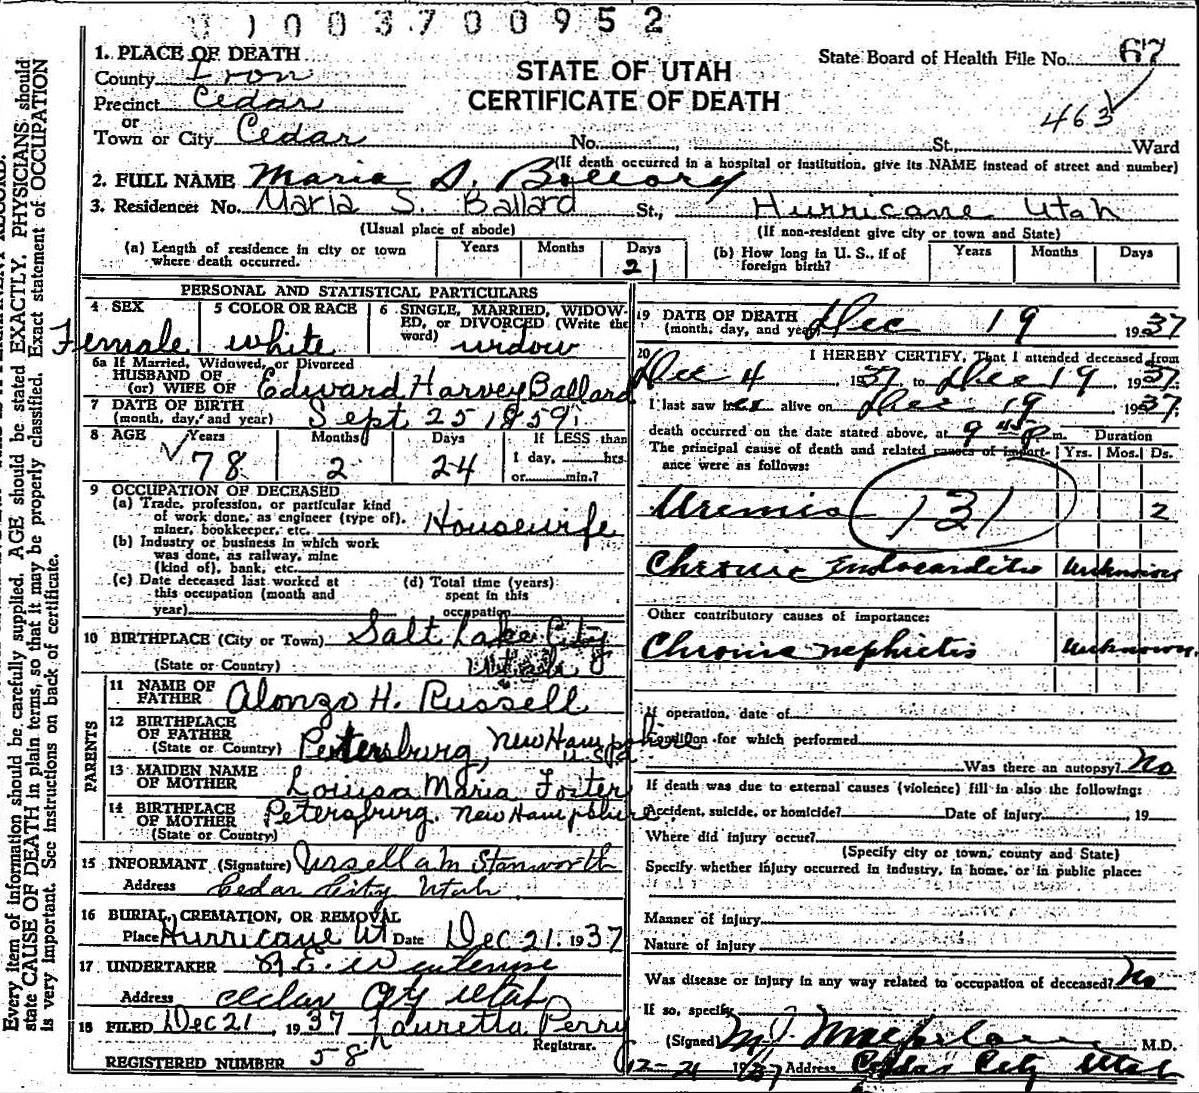 0 1 0 0 3 7 0 0 9 5 2
Every item of information should be carefully supplied. AGE should be stated EXACTLY. PHYSICIANS should
state CAUSE OF DEATH in plain terms, so that it may be properly classified. Exact statement of OCCUPATION
is very important. See instructions on back of certificate.
STATE OF UTAH
CERTIFICATE OF DEATH
State Board of Health File No. 67
463
1. PLACE OF DEATH
County Iron
Precinct Cedar
or
Town or City Cedar No. , St., Ward
(If death occurred in a hospital or institution, give its NAME instead of street and number)
2. FULL NAME Maria S. Ballard
3. Residence: No. Maria S. Ballard St., Hurricane Utah
(Usual place of abode) (If non-resident give city or town and State)
(a) Length of residence in city or town where death occurred. Years Months Days 21
(b) How long in U. S., if of foreign birth? Years Months Days
PERSONAL AND STATISTICAL PARTICULARS
4 SEX Female
5 COLOR OR RACE white
6 SINGLE, MARRIED, WIDOWED, or DIVORCED (Write the word) widow
6a If Married, Widowed, or Divorced
HUSBAND OF
(or) WIFE OF Edward Harvey Ballard
7 DATE OF BIRTH
(month, day, and year) Sept 25 1859
8 AGE Years 78 Months 2 Days 24 If LESS than
1 day, hrs.
or min.?
9 OCCUPATION OF DECEASED
(a) Trade, profession, or particular kind
of work done, as engineer (type of),
miner, bookkeeper, etc. Housewife
(b) Industry or business in which work
was done, as railway, mine
(kind of), bank, etc.
(c) Date deceased last worked at
this occupation (month and
year)
(d) Total time (years)
spent in this
occupation
10 BIRTHPLACE (City or Town) Salt Lake City
(State or Country) Utah
PARENTS
11 NAME OF
FATHER Alonzo H. Russell
12 BIRTHPLACE
OF FATHER
(State or Country) Petersburg, New Hampshire U.S.A
13 MAIDEN NAME
OF MOTHER Louisa Maria Foster
14 BIRTHPLACE
OF MOTHER Petersburg. New Hampshire.
(State or Country)
15 INFORMANT (Signature) Ursella M Stanworth
Address Cedar City Utah
16 BURIAL, CREMATION, OR REMOVAL
Place Hurricane Ut Date Dec 21. 1937
17 UNDERTAKER
Address Cedar City Utah
18 FILED Dec 21, 1937 Lauretta Perry
Registrar.
REGISTERED NUMBER 58
19 DATE OF DEATH
(month, day, and year) Dec 19 1937
20 I HEREBY CERTIFY, That I attended deceased from
Dec 4 1937 to Dec 19, 1937
I last saw her alive on Dec 19 1937.
death occurred on the date stated above, at 9 45 p. m.
The principal cause of death and related causes of importance were as follows:
Duration
Yrs. Mos. Ds.
Uremia 131 2
Chronic Endocarditis unknown
Other contributory causes of importance:
Chronic nephritis unknown.
If operation, date of
Condition for which performed
Was there an autopsy? No
If death was due to external causes (violence) fill in also the following:
Accident, suicide, or homicide? Date of injury , 19
Where did injury occur?
(Specify city or town, county and State)
Specify whether injury occurred in industry, in home, or in public place:
Manner of injury
Nature of injury
Was disease or injury in any way related to occupation of deceased? No
If so, specify
(Signed) M. J. Macfarlane M.D.
12-21 1937 Address Cedar City Utah